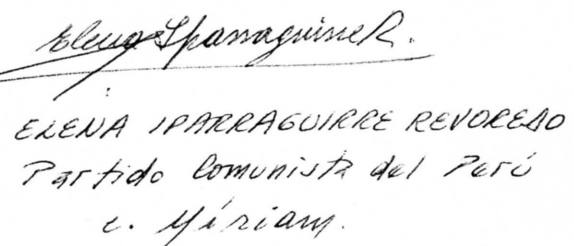 Elena Iparraguirre R.
ELENA IPARRAGUIRRE REVOREDO
Partido Comunista del Perú
c. Míriam.